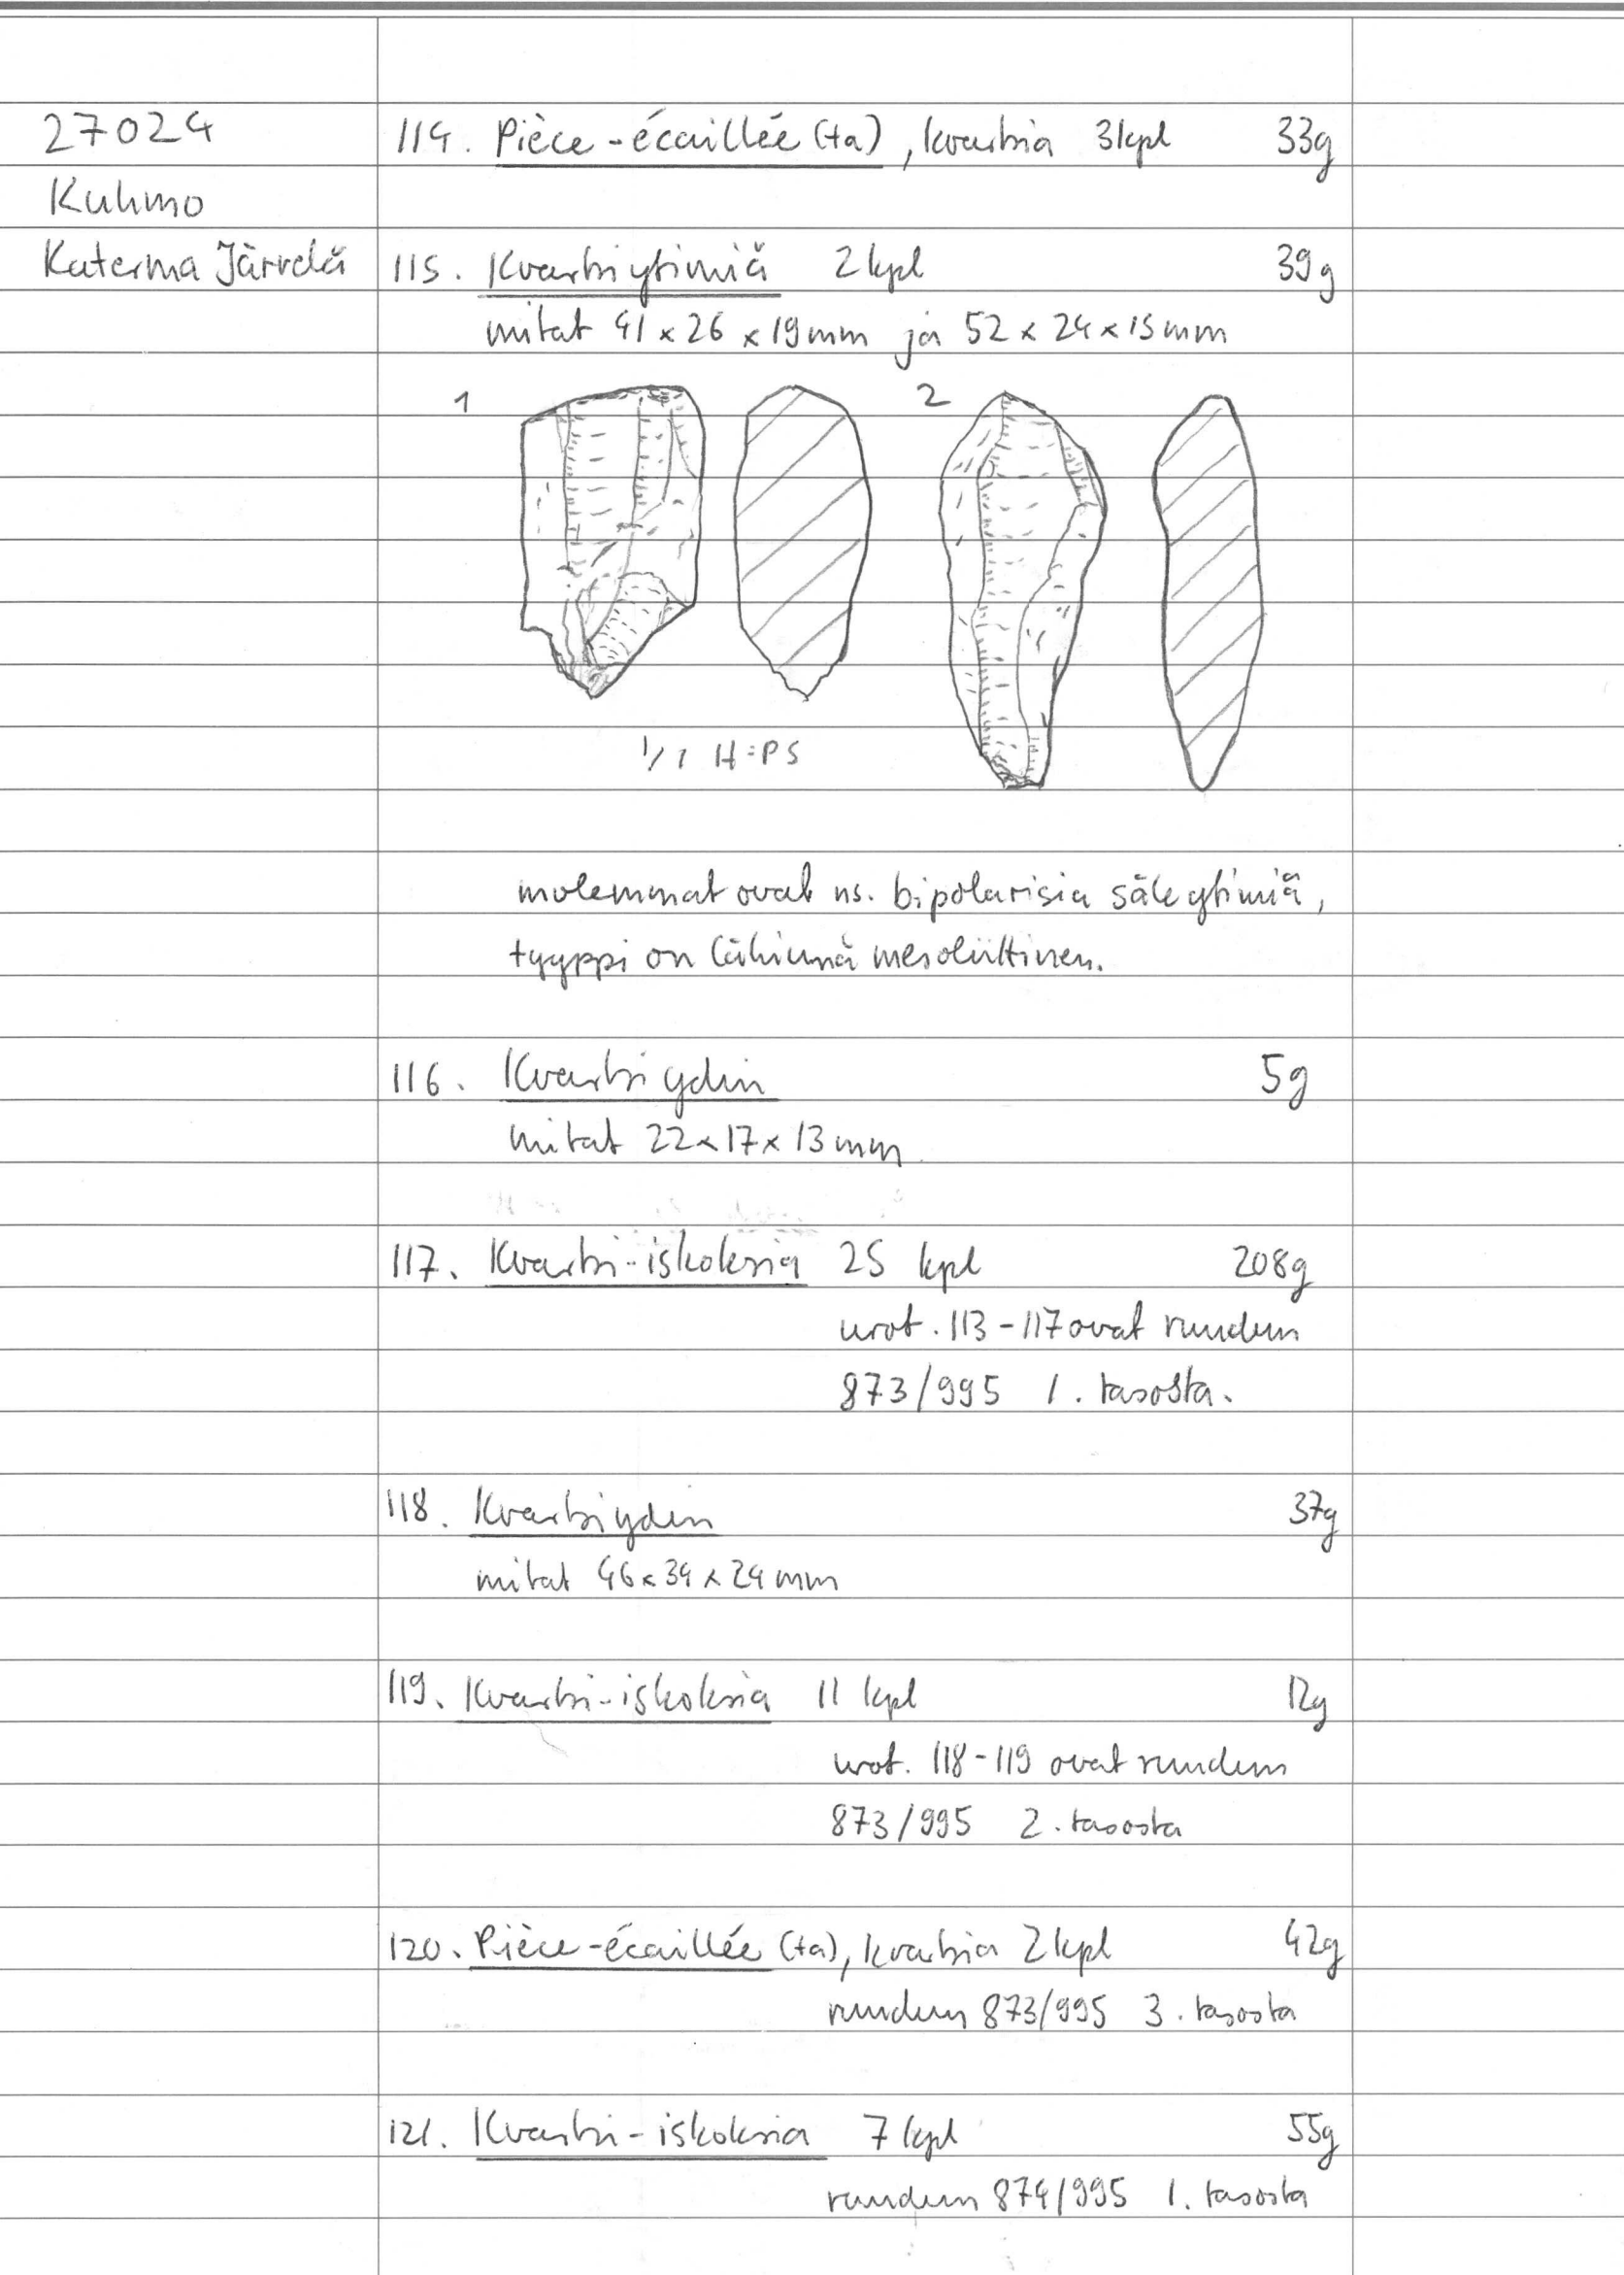 27024
Kuhmo
Katerma Järvelä
114. Pièce-écaillée (ta), kvartsia 3 kpl 33g
115. Kvartsiytimiä 2 kpl 39g
mitat 41 x 26 x 19 mm ja 52 x 24 x 15 mm
1 2
1/1 H=PS
molemmat ovat ns. bipolarisia säleytimiä,
tyyppi on lähinnä mesoliittinen.
116. Kvartsiydin 5g
mitat 22 x 17 x 13 mm
117. Kvartsi-iskoksia 25 kpl 208g
nrot. 113-117 ovat ruudun
873/995 1. tasosta.
118. Kvartsiydin 37g
mitat 46 x 34 x 24 mm
119. Kvartsi-iskoksia 11 kpl 12g
nrot. 118-119 ovat ruudun
873/995 2. tasosta
120. Pièce-écaillée (ta), kvartsia 2 kpl 42g
ruudun 873/995 3. tasosta
121. Kvartsi-iskoksia 7 kpl 55g
ruudun 874/995 1. tasosta